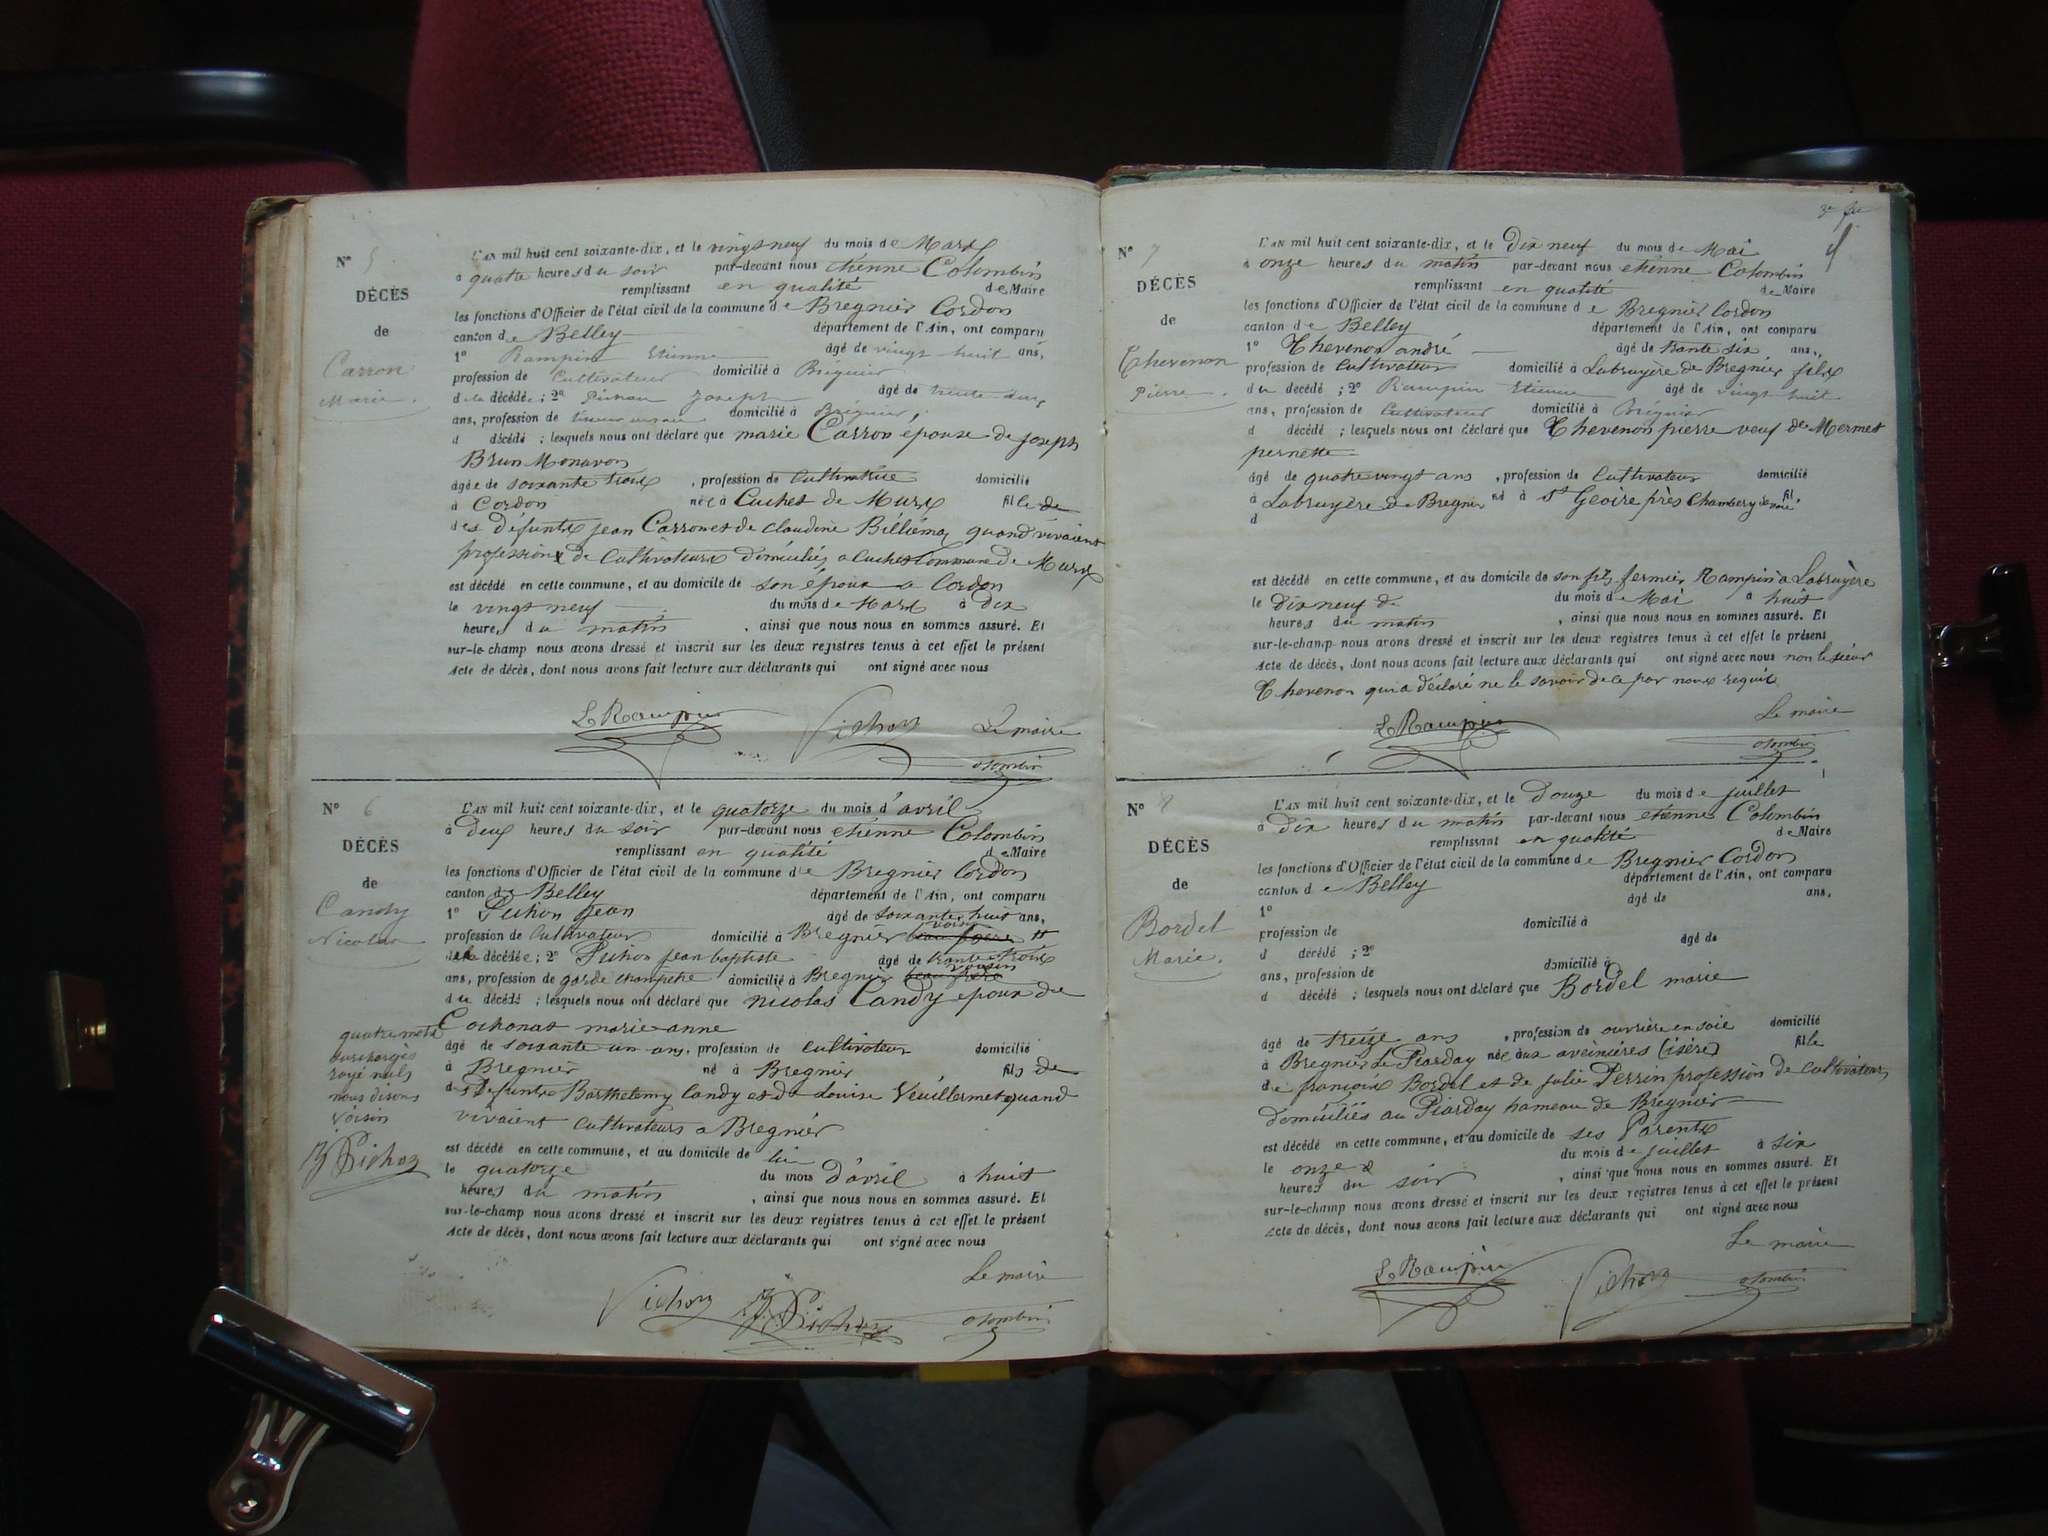 N° 5
DÉCÈS
de
Carron
Marie.
L'AN mil huit cent soixante-dix, et le vingt neuf du mois de Mars
à quatre heures du soir par-devant nous etiénne Colombin
remplissant en qualité de Maire
les fonctions d'Officier de l'état civil de la commune de Bregnier Cordon
canton de Belley département de l'Ain, ont comparu
1° Rampin Etienne âgé de vingt huit ans,
profession de Cultivateur domicilié à Brégnier
d la décédée; 2° Joseph âgé de trente
ans, profession de domicilié à Brégnier,
d décédé ; lesquels nous ont déclaré que marie Carron épouse de joseph
Brun Monavon
âgée de soixante trois , profession de Cultivatrice domicilié
à Cordon née à Cuchet de Murs fille de
des défunts jean Carron et de claudine Billiémaz quand vivaient
professions de Cultivateurs domiciliés a Cuchet Commune de Murs
est décédé en cette commune, et au domicile de son époux a Cordon
le vingt neuf du mois de Mars à dix
heures du matin , ainsi que nous nous en sommes assuré. Et
sur-le-champ nous avons dressé et inscrit sur les deux registres tenus à cet effet le présent
Acte de décès, dont nous avons fait lecture aux déclarants qui ont signé avec nous
E Rampin Pichoz Le maire
Colombin
N° 6
DÉCÈS
de
Candy
Nicolas
L'AN mil huit cent soixante-dix, et le quatorze du mois d'avril
à Deux heures du soir par-devant nous etiénne Colombin
remplissant en qualité de Maire
les fonctions d'Officier de l'état civil de la commune de Bregnier Cordon
canton de Belley département de l'Ain, ont comparu
1° Pichon jean âgé de soixante huit ans,
profession de Cultivateur domicilié à Bregnier voisin
décédée; 2° Pichon jean baptiste âgé de trente trois
ans, profession de garde champetre domicilié à Bregnier voisin
du décédé ; lesquels nous ont déclaré que nicolas Candy epoux de
Cochonat marie anne
âgé de soixante un ans, profession de cultivateur domicilié
à Bregnier né à Bregnier fils de
des Defunts Barthelemy Candy et de Louise Veuillermet quand
vivaient Cultivateurs a Bregnier
est décédé en cette commune, et au domicile de lui
le quatorze du mois d'avril à huit
heures du matin , ainsi que nous nous en sommes assuré. Et
sur-le-champ nous avons dressé et inscrit sur les deux registres tenus à cet effet le présent
Acte de décès, dont nous avons fait lecture aux déclarants qui ont signé avec nous
quatre mots
surchargés
rayé nuls
nous disons
voisin
Pichoz
Le maire
Pichoz J. Pichoz Colombin
N° 7
DÉCÈS
de
Thevenon
Pierre.
L'AN mil huit cent soixante-dix, et le Dix neuf du mois de Mai
à onze heures du matin par-devant nous etiénne Colombin
remplissant en qualité de Maire
les fonctions d'Officier de l'état civil de la commune de Bregnier Cordon
canton de Belley département de l'Ain, ont comparu
1° Thevenon andré âgé de trante six ans,
profession de Cultivateur domicilié à Labruyère de Bregnier fils
du décédé ; 2° Rampin Etienne âgé de vingt huit
ans, profession de Cultivateur domicilié à Brégnier
d décédé ; lesquels nous ont déclaré que Thevenon pierre veuf de Mermet
pernette
âgé de quatre vingt ans , profession de Cultivateur domicilié
à Labruyère de Bregnier né à St Geoire près Chambery Savoie fil
d
est décédé en cette commune, et au domicile de son fils fermier Rampin a Labruyère
le dix neuf de du mois de Mai à huit
heures du matin , ainsi que nous nous en sommes assuré. Et
sur-le-champ nous avons dressé et inscrit sur les deux registres tenus à cet effet le présent
Acte de décès, dont nous avons fait lecture aux déclarants qui ont signé avec nous non le sieur
Thevenon qui a déclaré ne le savoir de ce par nous requis
Le maire
E Rampin Colombin
N° 8
DÉCÈS
de
Bordel
Marie.
L'AN mil huit cent soixante-dix, et le Douze du mois de juillet
à Dix heures du matin par-devant nous etiénne Colombin
remplissant en qualité de Maire
les fonctions d'Officier de l'état civil de la commune de Bregnier Cordon
canton de Belley département de l'Ain, ont comparu
1° âgé de ans,
profession de domicilié à
d décédé ; 2° âgé de
ans, profession de domicilié à
d décédé ; lesquels nous ont déclaré que Bordel marie
âgé de treize ans , profession de ouvrière en soie domicilié
à Bregnier Le Piarday née aux aveinières (isère) fille
de françois Bordel et de julie Perrin profession de Cultivateurs
domiciliés au Piarday hameau de Bregnier
est décédé en cette commune, et au domicile de ses Parents
le onze du mois de juillet à six
heures du soir , ainsi que nous nous en sommes assuré. Et
sur-le-champ nous avons dressé et inscrit sur les deux registres tenus à cet effet le présent
Acte de décès, dont nous avons fait lecture aux déclarants qui ont signé avec nous
Le maire
E Rampin Pichoz Colombin